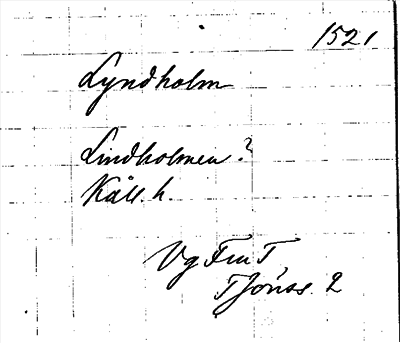 1521
Lyndholm
Lindholmen?
Kåll. h.
Vg Fm T
T Jönss. 2